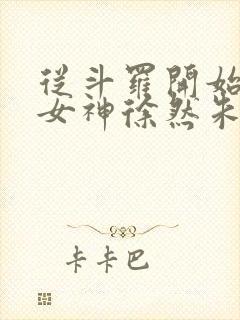 從斗羅開始
女神徐然朱
卡卡巴